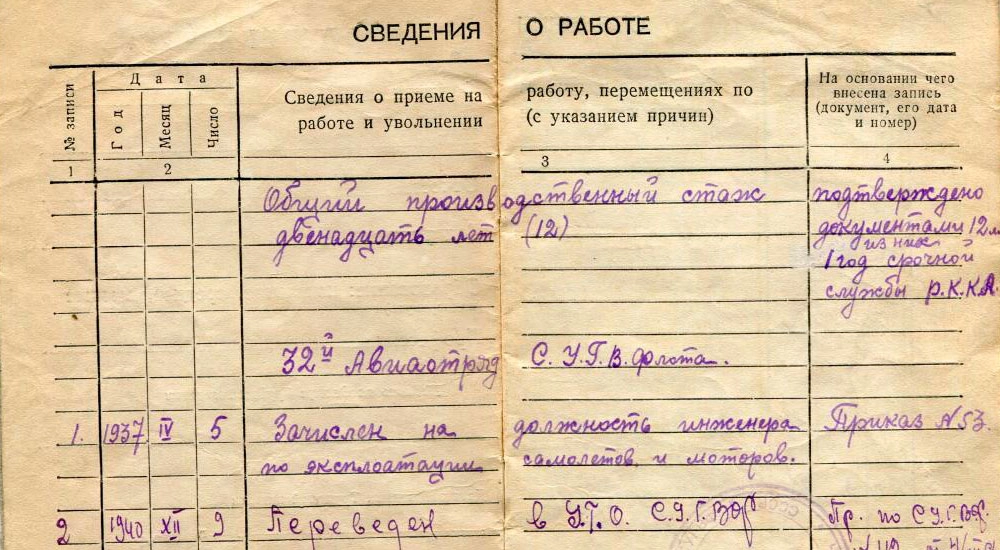 СВЕДЕНИЯ О РАБОТЕ
№ записи
Дата
Год
Месяц
Число
Сведения о приеме на работу, перемещениях по
работе и увольнении (с указанием причин)
На основании чего
внесена запись
(документ, его дата
и номер)
1 2 3 4
Общий производственный стаж
двенадцать лет (12)
подтверждено
документами 12 л.
из них
1 год срочной
службы Р.К.К.А.
32й Авиаотряд С.У.Г.В.Флота.
1. 1937 IV 5 Зачислен на должность инженера Приказ N 53.
по эксплоатации самолетов и моторов.
2 1940 XII 9 Переведен в У.Г.О. С.У.Г.ВФ Пр. по С.У.Г.ВФ